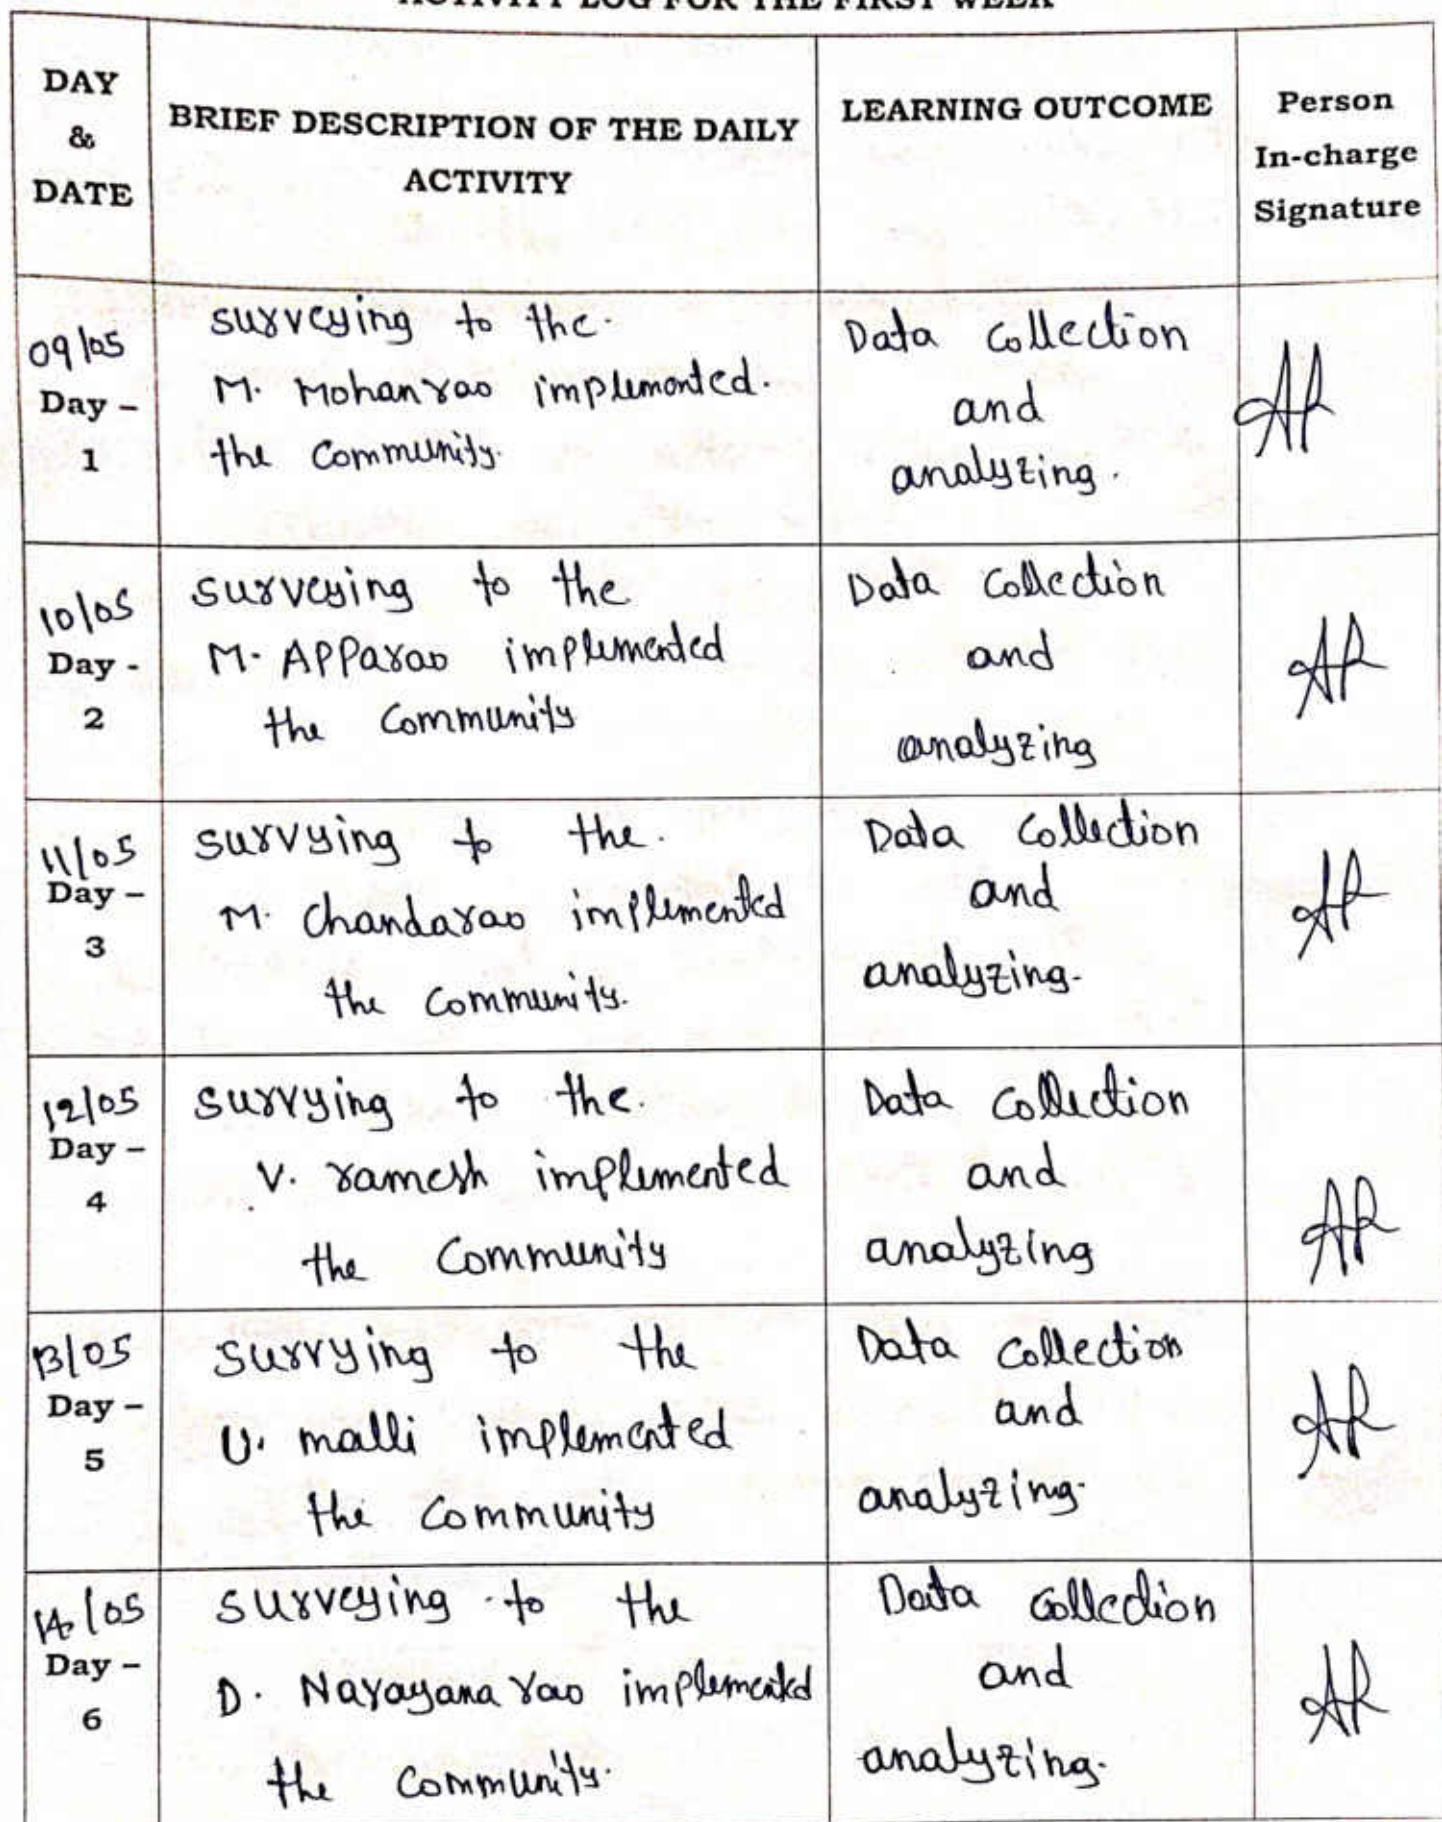 ACTIVITY LOG FOR THE FIRST WEEK
DAY & DATE
BRIEF DESCRIPTION OF THE DAILY ACTIVITY
LEARNING OUTCOME
Person In-charge Signature
09/05
Day – 1
surveying to the.
M. Mohanrao implemented.
the Community.
Data Collection
and
analyzing.
10/05
Day - 2
surveying to the
M. Apparao implemented
the Community
Data Collection
and
analyzing
11/05
Day – 3
survying to the.
M. Chandarao implemented
the Community.
Data Collection
and
analyzing.
12/05
Day – 4
survying to the.
V. ramesh implemented
the Community
Data Collection
and
analyzing
13/05
Day – 5
survying to the
U. malli implemented
the Community
Data Collection
and
analyzing.
14/05
Day – 6
surveying to the
D. Narayana rao implemented
the Community.
Data Collection
and
analyzing.